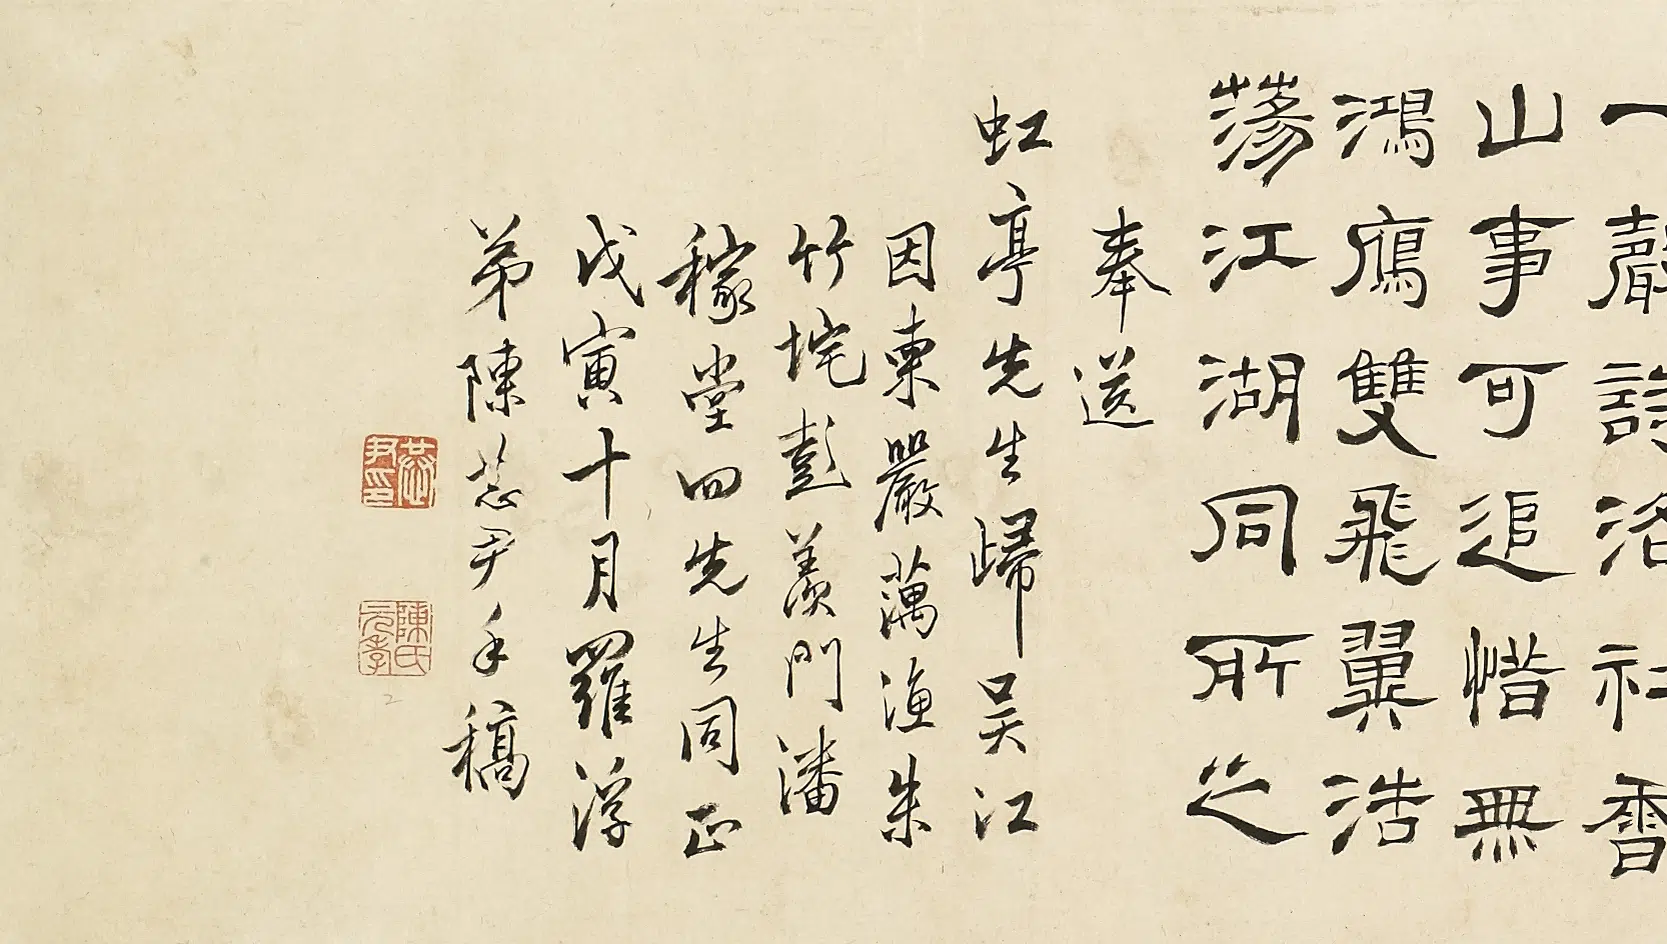 一聲詩洛社香
山事可追惜無
鴻雁雙飛翼浩
蕩江湖同所之
奉送
虹亭先生歸吳江
因柬嚴藕漁朱
竹垞彭羨門潘
稼堂四先生同正
戊寅十月羅浮
弟陳恭尹手稿
恭尹印
陳氏元孝